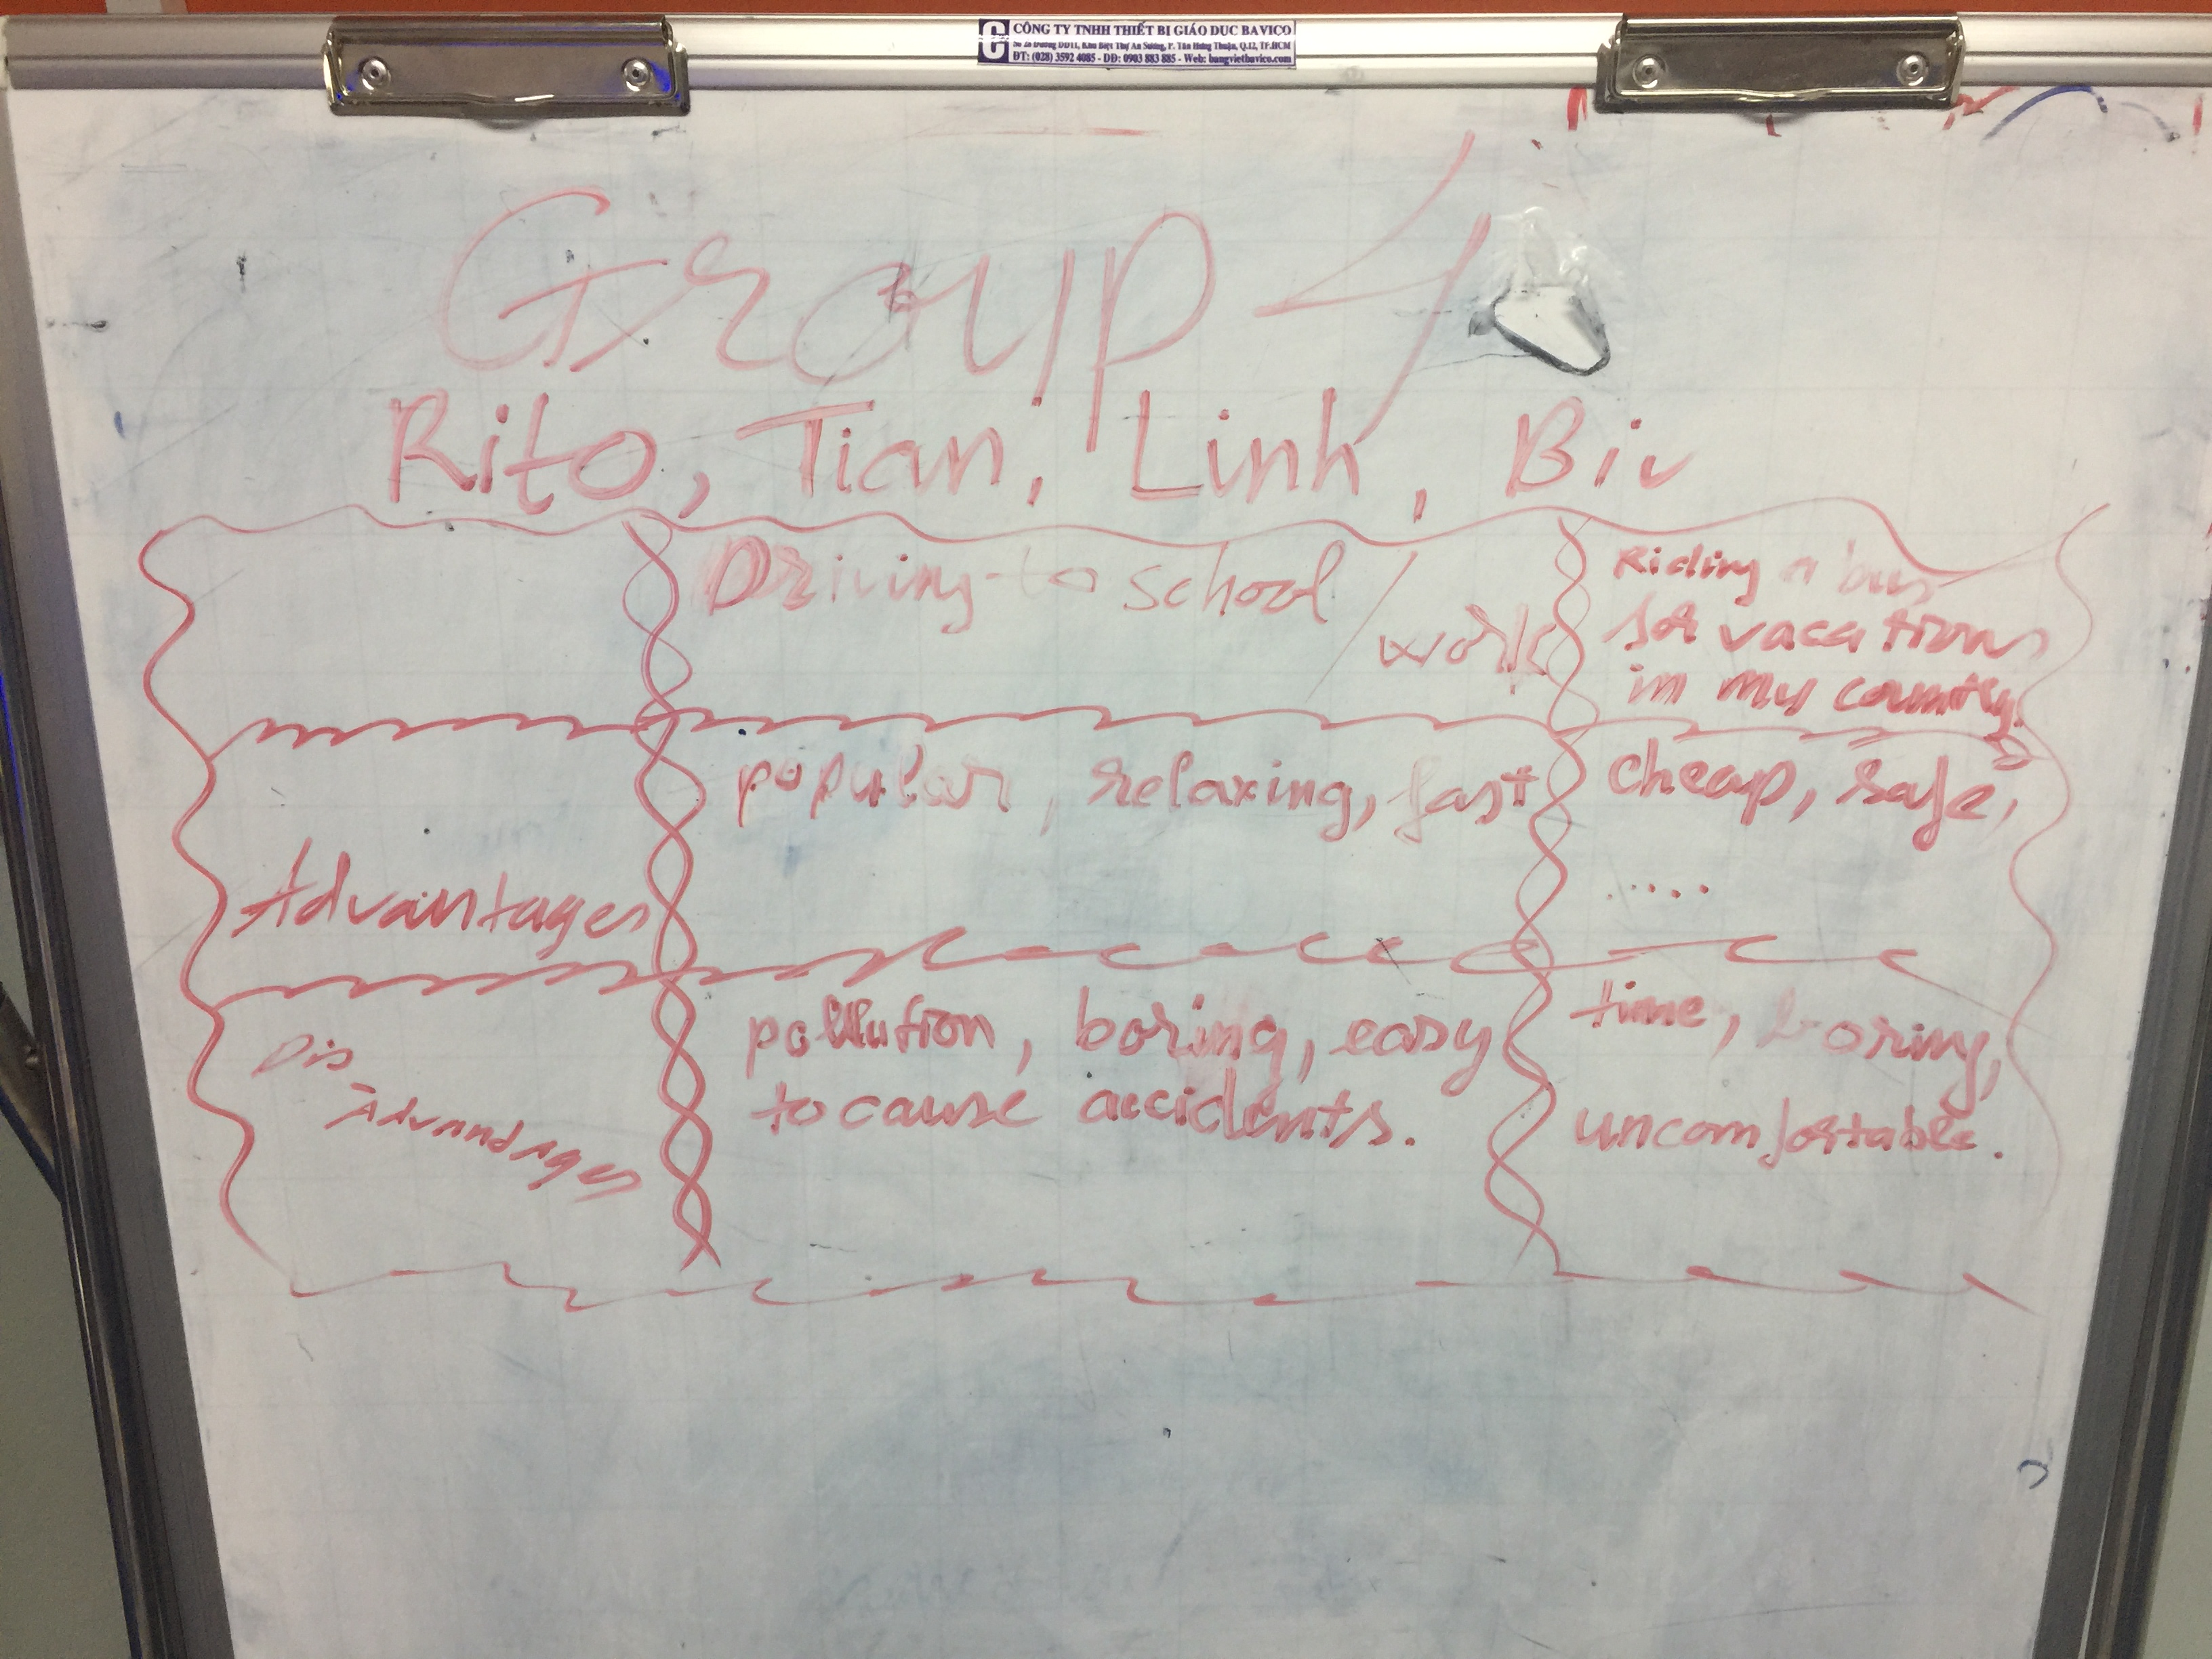 CÔNG TY TNHH THIẾT BỊ GIÁO DỤC BAVICO
Số 26 Đường DD11, Khu Biệt Thự An Sương, P. Tân Hưng Thuận, Q.12, TP.HCM
ĐT: (028) 3592 4085 - DĐ: 0903 883 885 - Web: bangvietbavico.com
Group 4
Rito, Tian, Linh, Biu
Driving to school / work
Riding a bus
for vacation
in my country
Advantages
popular, relaxing, fast
cheap, safe,
.....
Dis
-Advandages
pollution, boring, easy
to cause accidents.
time, boring,
uncomfortable.